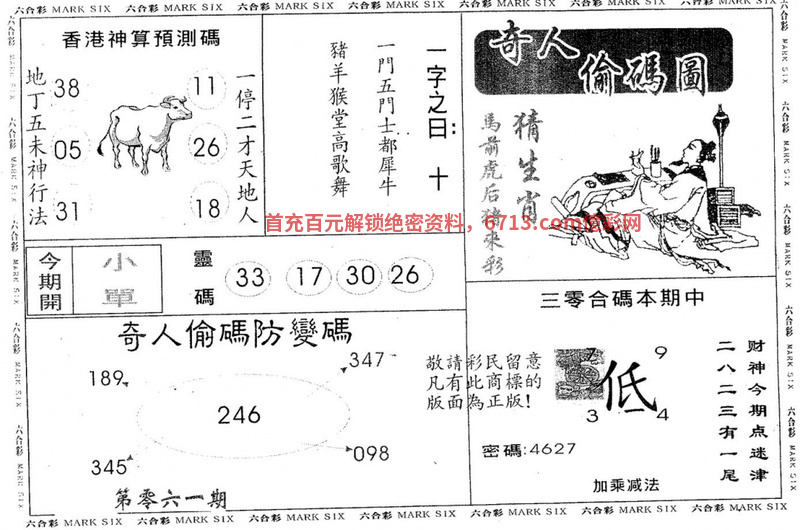 六合彩 MARK SIX 六合彩 MARK SIX 六合彩 MARK SIX 六合彩 MARK SIX 六合彩 MARK SIX 六合彩 MARK SIX 六合彩 MARK SIX
香港神算預測碼
地丁五未神行法
38
05
31
11
26
18
一停二才天地人
一字之曰: 十
一門五門士都犀牛
豬羊猴堂高歌舞
奇人偷碼圖
猜生肖
馬前虎后豬來彩
首充百元解锁绝密资料，6713.com
今期開
小單
靈碼
33 17 30 26
奇人偷碼防變碼
189
347
246
345
098
第零六一期
敬請彩民留意
凡有此商標的
版面為正版!
三零合碼本期中
7
9
低
3
4
密碼:4627
加乘减法
财神今期点迷津
二八二三有一尾
六合彩 MARK SIX 六合彩 MARK SIX 六合彩 MARK SIX 六合彩 MARK SIX 六合彩 MARK SIX 六合彩 MARK SIX 六合彩 MARK SIX